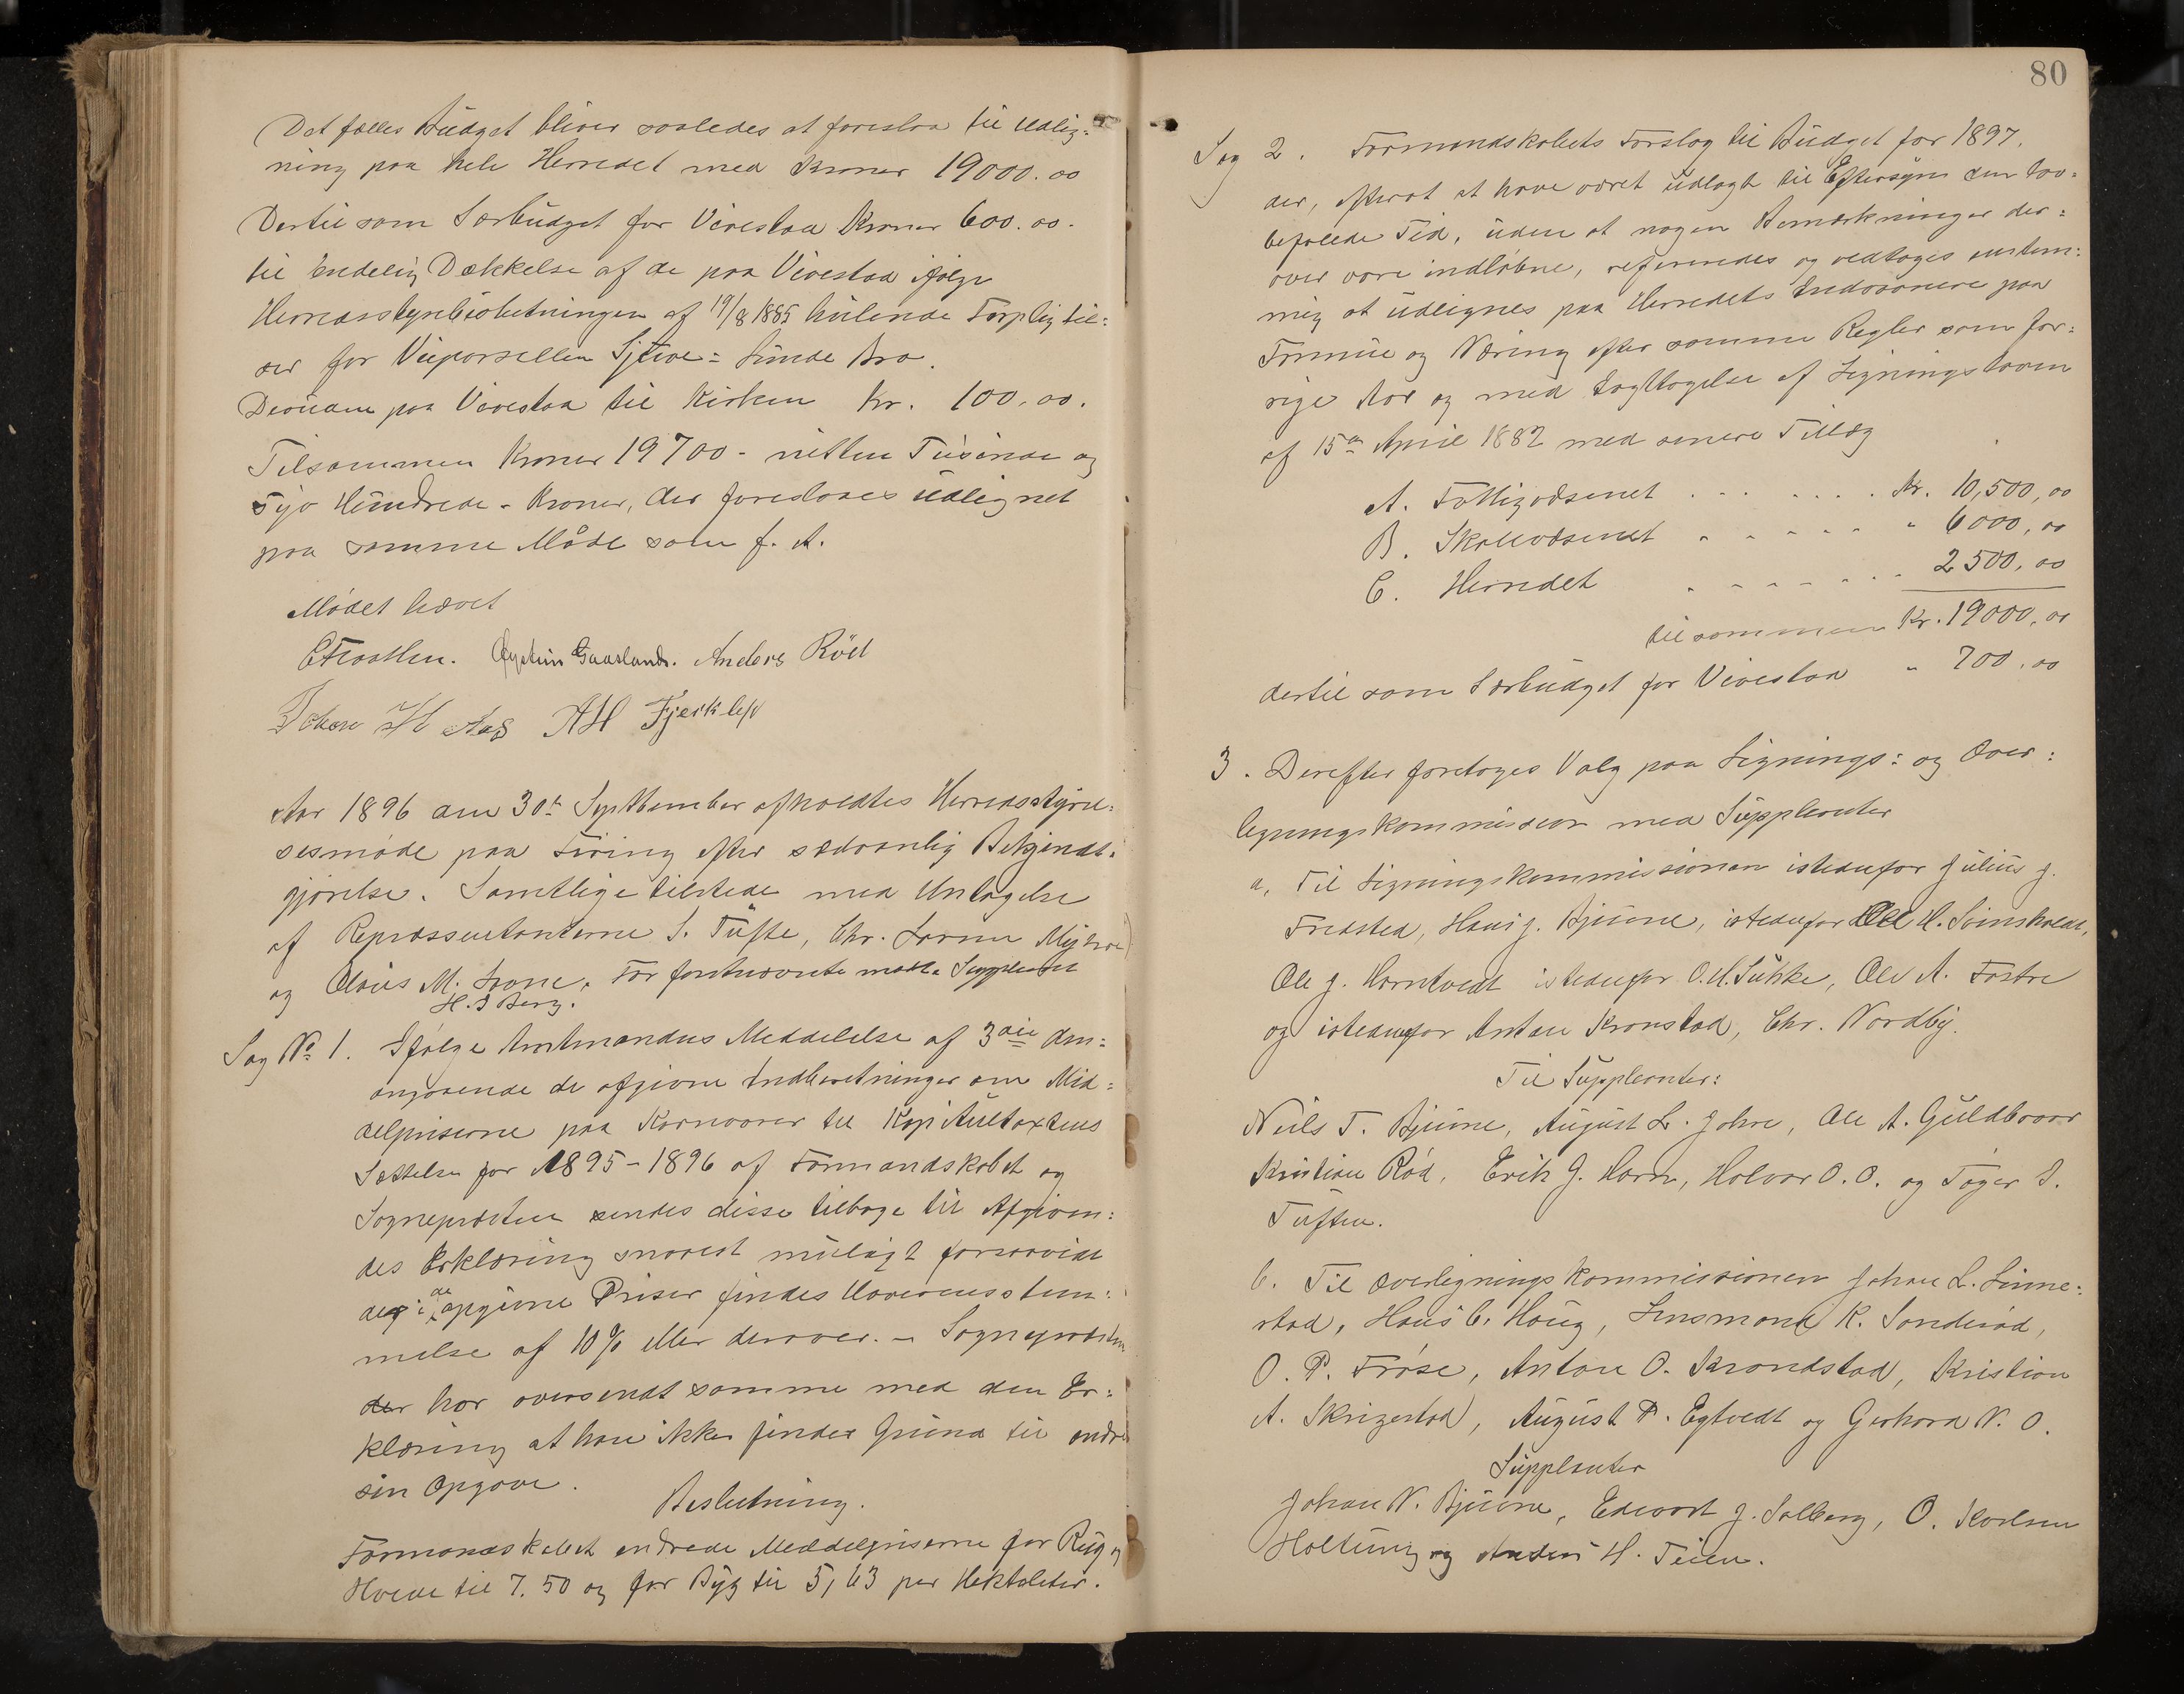 Det fælles Budget bliver saaledes at foreslaa til Udlig=
ning paa hele Herredet med Kroner 19000.00
Dertil som Særbudget for Vivestad Kroner 600.00.
til endelig Dækkelse af de paa Vivestad ifølge
Herredsstyrelsesbeslutningen af 19/8 1885 hvilende Forpligtel=
ser for Veiparsellen Sjue = Sunde Bro.
Desuden paa Vivestad til Kirken Kr. 100,00.
Tilsammen Kroner 19700 - nitten Tusinde og
Syv Hundrede - Kroner, der foreslaaes udlignet
paa samme Måde som f. A.
Mödet hævet
Öystein Gaasland. Anders Röd
Johan Aas AH Fjerkleþ
Aar 1896 den 30te September afholdtes Herredsstyrel=
sesmøde paa Föring efter sædvanlig Bekjendt=
gjörelse. Samtlige tilstede med Untagelse
af Repræssentanterne S. Tufte, Chr. Lorens Myhre
og Olaus M. Skorge. For førstnævnte mødte Supplent
H. S Berg.
Sag No 1. Ifölge Amtmandens Meddelelse af 3die dm=
angaaende de afgivne Indberetninger om Mid=
delpriserne paa Kornvarer til Kapitultaxtens
Sættelse for 1895-1896 af Formandskabet og
Sognepræsten sendes disse tilbage til Afgiven=
des Erklæring snarest muligt forsaavidt
der i de opgivne Priser findes Uoverensstem=
melse af 10% eller derover. - Sognepræsten
der har oversendt samme med den Er=
klæring at han ikke finder Grund til ændre
sin Opgave.
Beslutning.
Formandskabet endrede Meddelpriserne for Rug og
Hvede til 7,50 og for Byg til 5,63 per Hektoliter.
80
Sag 2. Formandskabets Forslag til Budget for 1897,
der, efterat at have været udlagt til Eftersyn den lov=
befalede Tid, uden at nogen Bemærkninger der=
over vare indløbne, refereredes og vedtoges enstem=
mig at udlignes paa Herredets Indvaanere paa
Formue og Næring efter samme Regler som for=
rige Aar og med Iagttagelse af Ligningsloven
af 15de April 1882 med senere Tillæg
A. Fattigvæsenet . . . . . . . Kr. 10,500,00
B. Skolevæsenet - - - - - " 6000,00
C. Herredet - - - - - - 2500,00
tilsammen Kr. 19000,00
dertil som Særbudget for Vivestad " 700.00
3. Derefter foretoges Valg paa Lignings: og Over:
ligningskommission med Suppleanter
a, Til Ligningskommissionen istedenfor Julius J.
Fredsted, Hans J. Bjune, istedenfor Ole H. Svinsholdt,
Ole J. Horntvedt istedenfor O. H. Suhke, Ole A. Fostve
og istedenfor Anton Kronstad, Chr. Nordby.
Til Suppleanter:
Neils T. Bjune, August L. Johre, Ole A. Guldbraar
Kristian Röd, Erik J. Horn, Holvar O. O. og Tøger S.
Tuften.
b. Til Overligningskommissionen Johan L. Linne=
stad, Hans C. Haug, Lensmand K. Sonderöd,
O. P. Fröse, Anton O. Krondstad, Kristian
A. Skrigestad, August P. Egtvedt og Gerhard N. O.
Supplanter
Johan N. Bjune, Edvart J. Solberg, O. Karlsen
Holtung og Anders H. Teien.